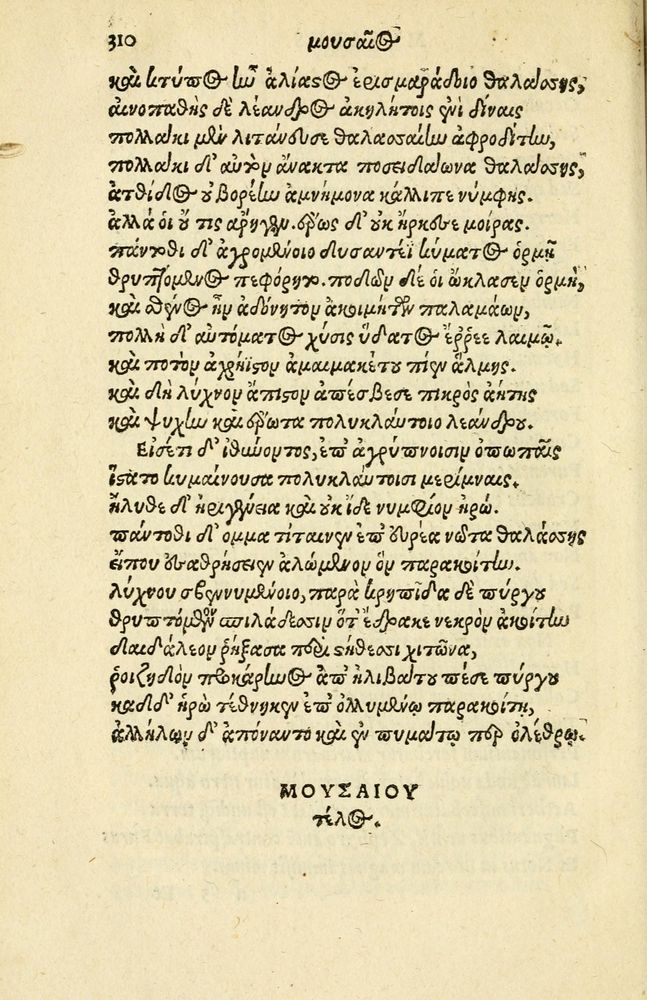 310 μουσαῖος
καὶ κτύπος ἦν ἁλίαστος ἐρισμαράδοιο θαλάσσης,
αἰνοπαθὴς δὲ λέανδρος ἀκηλήτοις ἐνὶ δίναις
πολλάκι μὲν λιτάνευσε θαλασσαίην ἀφροδίτην,
πολλάκι δ' αὐτὸν ἄνακτα ποσειδάωνα θαλάσσης,
ἀτθίδος οὐ βορέην ἀμνήμονα κάλλιπε νύμφης.
ἀλλά οἱ οὔ τις ἄρηγεν. ἔρως δ' οὐκ ἤρκεσε μοίρας.
πάντοθι δ' ἀγρομένοιο δυσαντέϊ κύματος ὁρμῇ
θρυπτόμενος πεφόρητο. ποδῶν δέ οἱ ὤκλασεν ὁρμὴ,
καὶ σθένος ἦν ἀδόνητον ἀκοιμήτων παλαμάων,
πολλὴ δ' αὐτόματος χύσις ὕδατος ἔῤῥεε λαιμῷ.
καὶ ποτὸν ἀχρήϊστον ἀμαιμακέτου πίεν ἅλμης.
καὶ δὴ λύχνον ἄπιστον ἀπέσβεσε πικρὸς ἀήτης
καὶ ψυχὴν καὶ ἔρωτα πολυκλαύτοιο λεάνδρου.
Εἰσέτι δ' ἰθύνοντος, ἐπ' ἀγρύπνοισιν ὀπωπαῖς
ἵστατο κυμαίνουσα πολυκλαύτοισι μερίμναις.
ἤλυθε δ' ἠριγένεια καὶ οὐκ ἴδε νυμφίον ἡρώ.
πάντοθι δ' ὄμμα τίταινεν ἐπ' εὐρέα νῶτα θαλάσσης
εἴπου ἐσαθρήσειεν ἀλώμενον ὃν παρακοίτην.
λύχνου σβεννυμένοιο, παρὰ κρηπῖδα δὲ πύργου
θρυπτόμενον σπιλάδεσσιν ὅτ' ἔδρακε νεκρὸν ἀκοίτην
δαιδάλεον ῥήξασα περὶ στήθεσσι χιτῶνα,
ῥοιζηδὸν προκάρηνος ἀπ' ἠλιβάτου πέσε πύργου
καδδ' ἡρὼ τέθνηκεν ἐπ' ὀλλυμένῳ παρακοίτῃ,
ἀλλήλων δ' ἀπόναντο καὶ ἐν πυμάτῳ περ ὀλέθρῳ.
ΜΟΥΣΑΙΟΥ
τέλος.